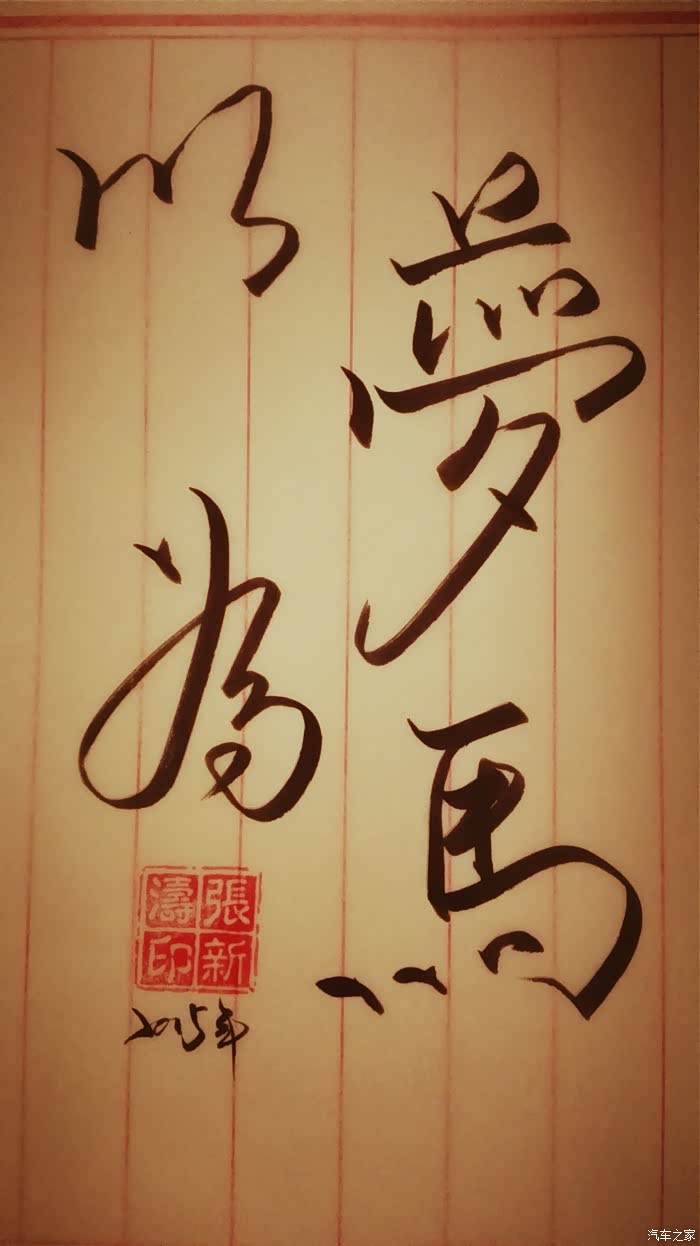 以夢
為馬
張新
濤印
2015年
汽车之家